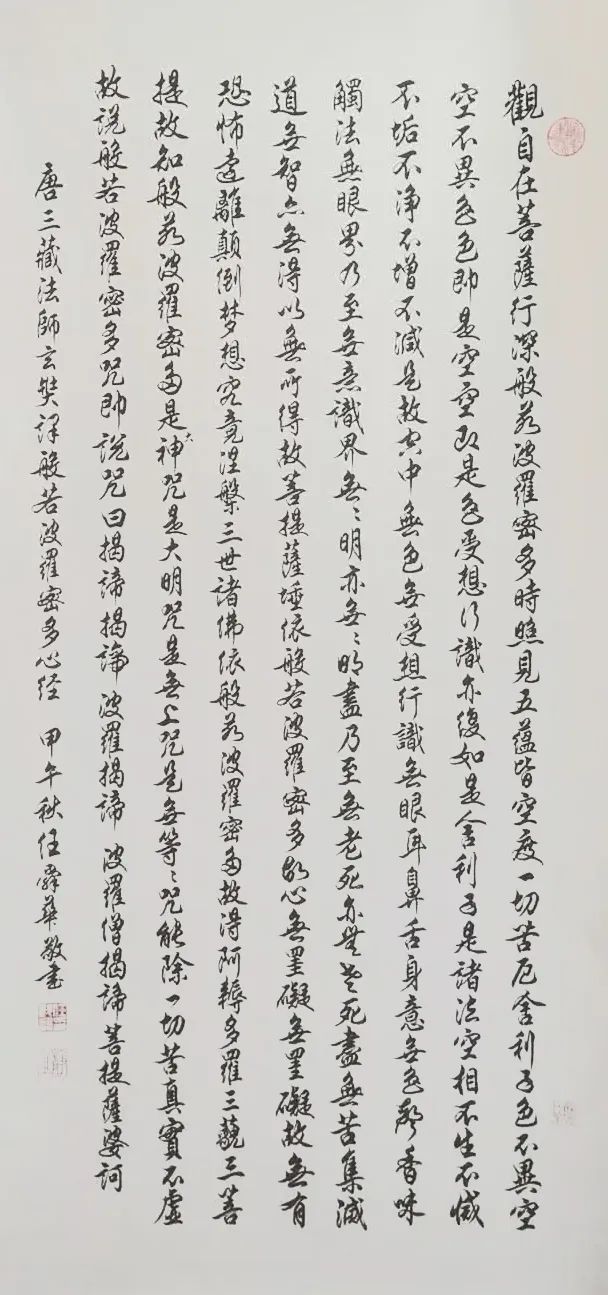 觀自在菩薩行深般若波羅密多時照見五蘊皆空度一切苦厄舍利子色不異空
空不異色色即是空空即是色受想行識亦復如是舍利子是諸法空相不生不滅
不垢不淨不增不減是故空中無色無受想行識無眼耳鼻舌身意無色聲香味
觸法無眼界乃至無意識界無〻明亦無〻明盡乃至無老死亦無老死盡無苦集滅
道無智亦無得以無所得故菩提薩埵依般若波羅密多故心無罣礙無罣礙故無有
恐怖遠離顛倒夢想究竟涅槃三世諸佛依般若波羅密多故得阿耨多羅三藐三菩
提故知般若波羅密多是大神咒是大明咒是無上咒是無等〻咒能除一切苦真實不虛
故說般若波羅密多咒即說咒曰揭諦揭諦波羅揭諦波羅僧揭諦菩提薩婆訶
唐三藏法師玄奘譯般若波羅密多心經 甲午秋任舜華敬書